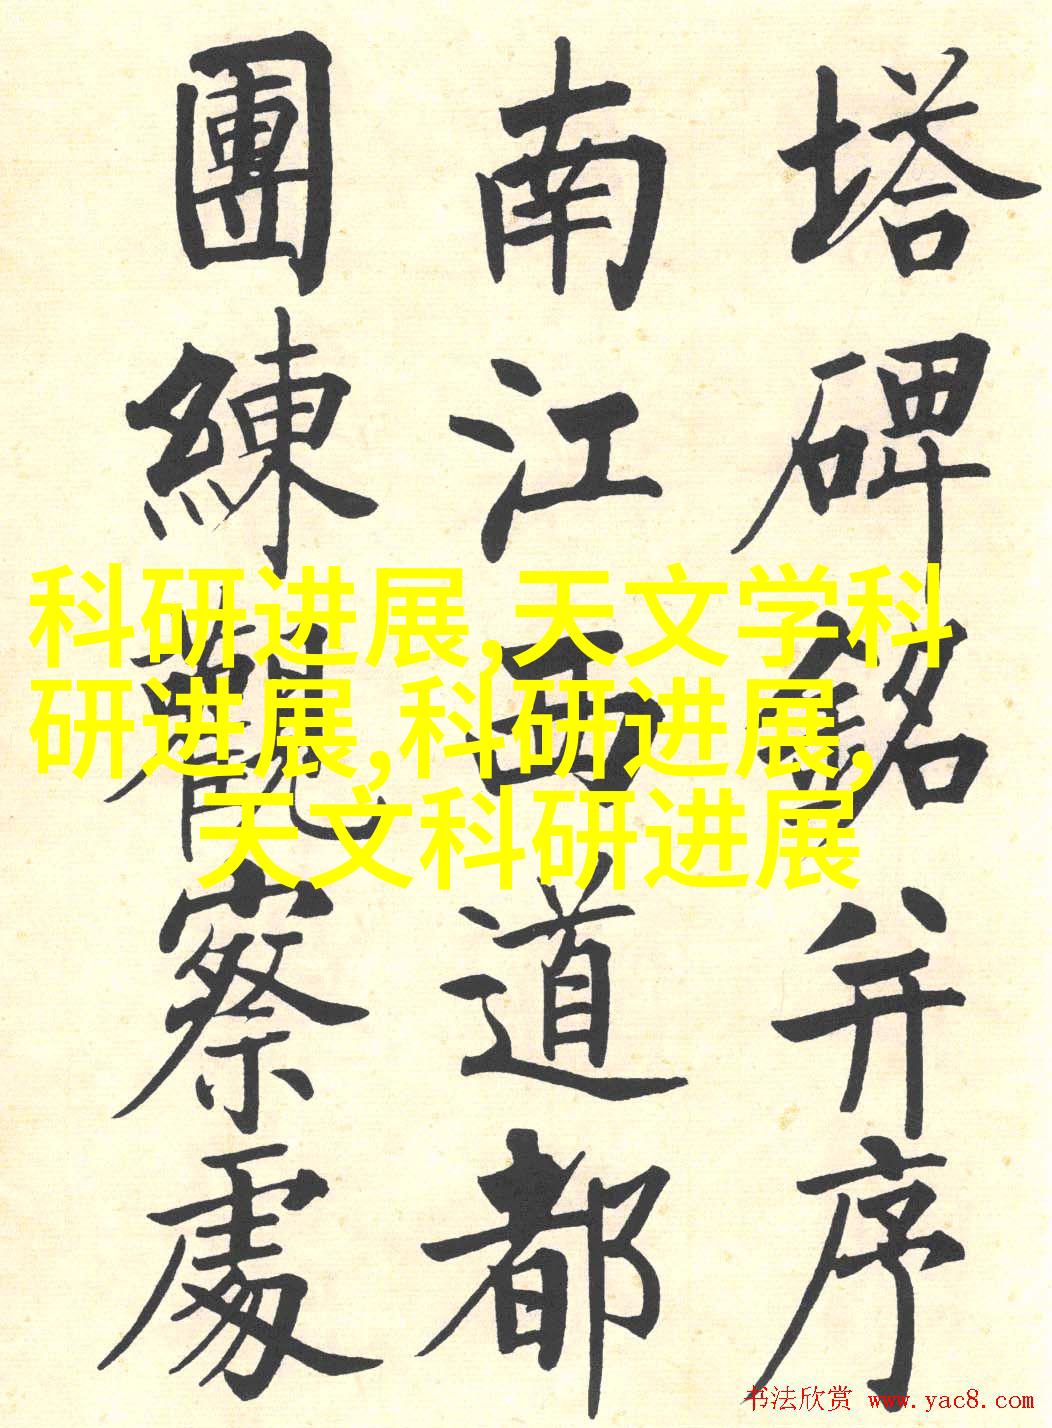 塔碑銘并序
南江西道都
團練觀察處
科研进展,天文学科
研进展,科研进展,
天文科研进展
书法欣赏 www.yac8.com